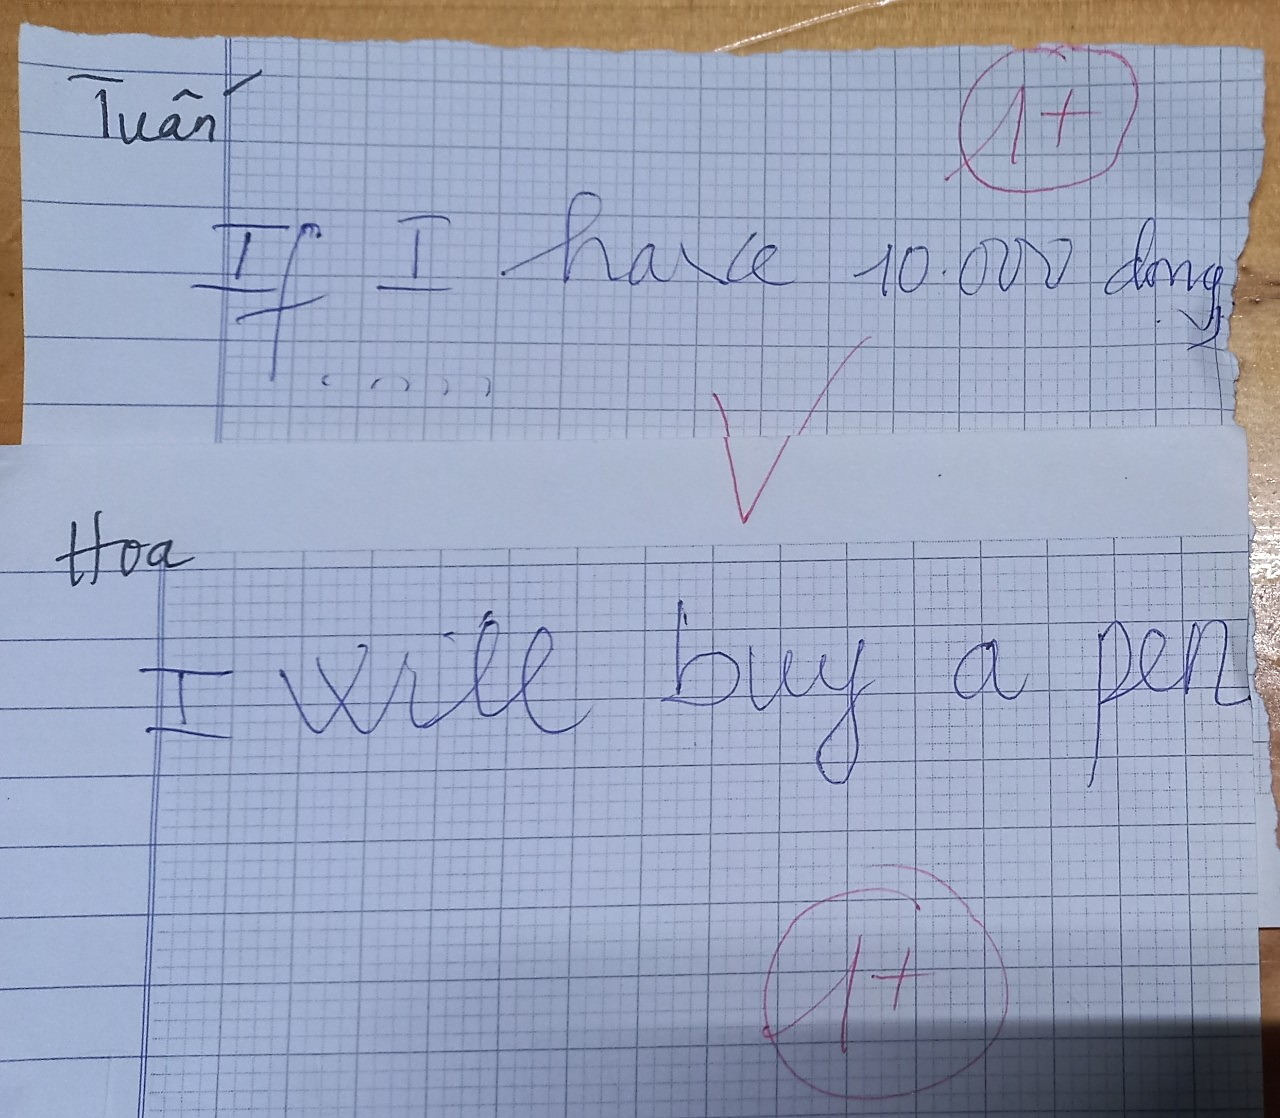 Tuấn
1+
If I have 10.000 dong
.....
Hoa
I will buy a pen
1+